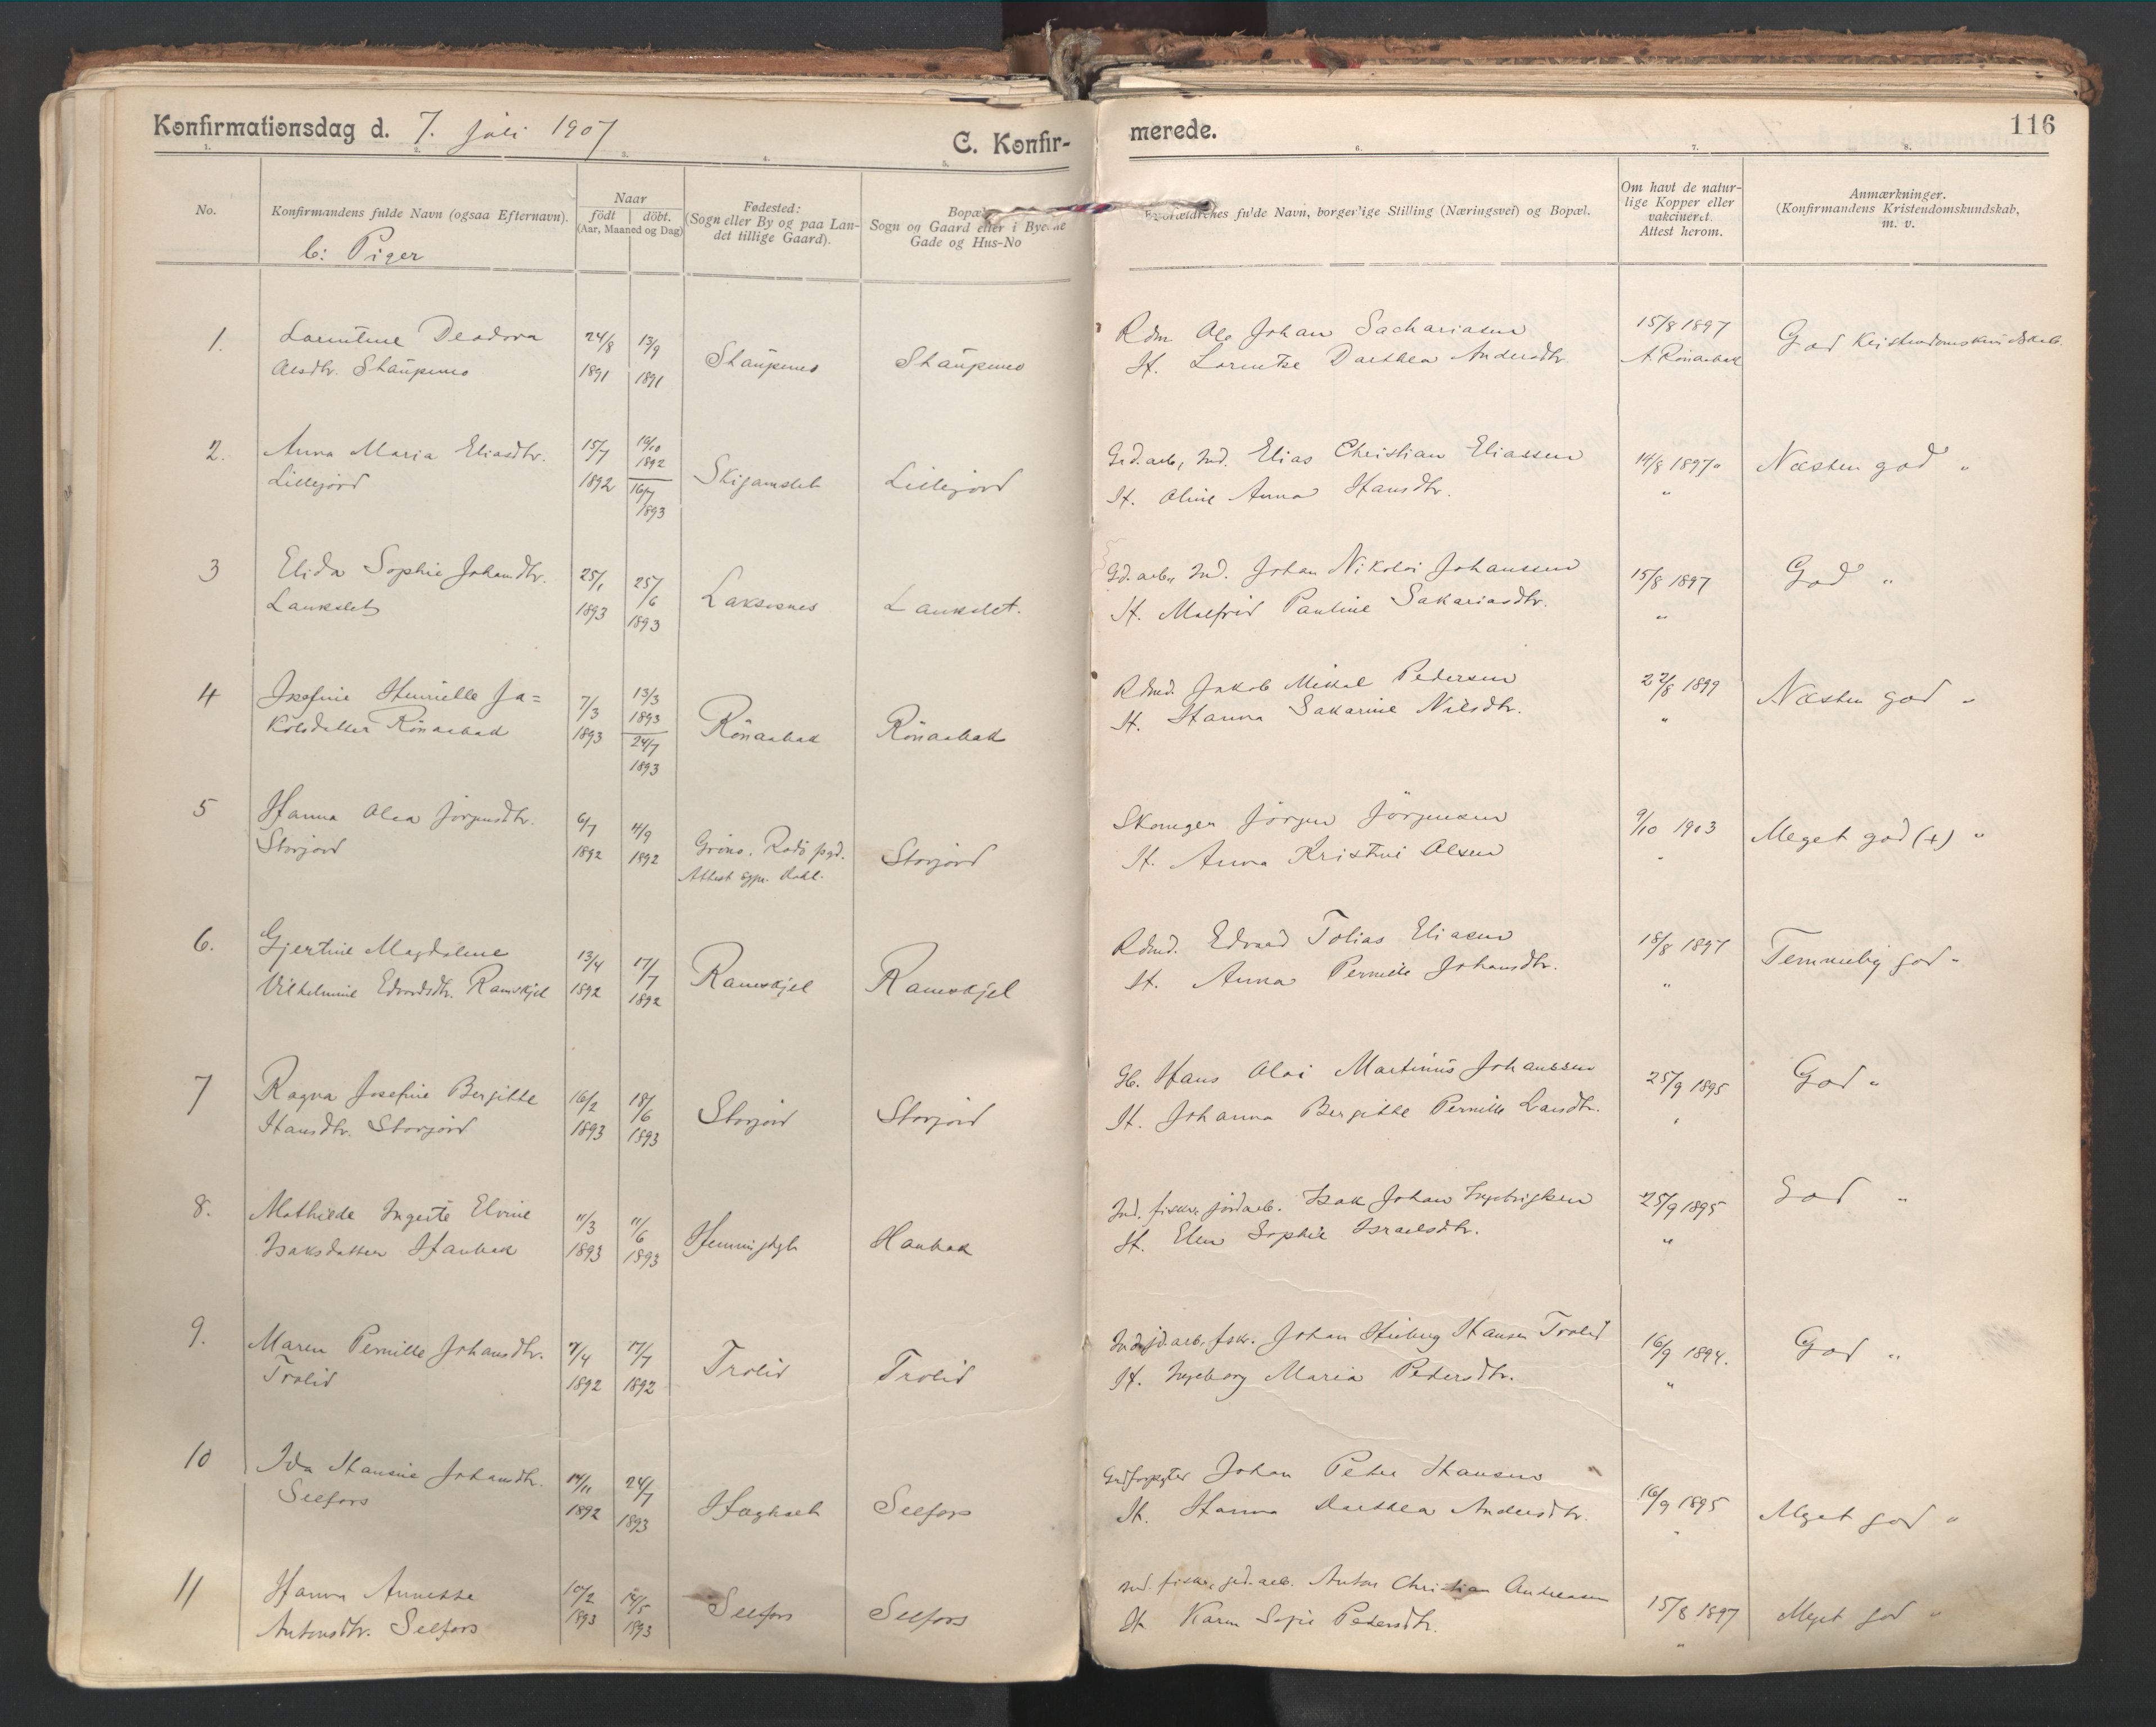 Konfirmationsdag d. 7. juli 1907
C. Konfir-
merede.
116
1. 2. 3. 4. 5. 6. 7. 8.
No.
Konfirmandens fulde Navn (ogsaa Efternavn).
b: Piger
Naar
födt döbt.
(Aar, Maaned og Dag)
Fødested:
(Sogn eller By og paa Lan-
det tillige Gaard).
Bopæl
Sogn og Gaard eller i Byerne
Gade og Hus-No
fulde Navn, borgerlige Stilling (Næringsvei) og Bopæl.
Om havt de natur-
lige Kopper eller
vakcineret.
Attest herom.
Anmærkninger.
(Konfirmandens Kristendomskundskab,
m. v.
1. Larentine Deodora
Olesdtr. Staupenes
24/8 1891
13/9 1891
Staupenes
Staupenes
Rdm. Ole Johan Sachariasen
H. Lorentze Dorthea Andersdtr.
15/8 1897
A. Rönaabak
God Kristendomskundskab.
2. Anna Maria Eliasdtr.
Lillejord
15/7 1892
16/10 1892
16/7 1893
Skigamslet
Lillejord
Grd.arb, Ind. Elias Christian Eliassen
H. Oline Anna Hansdtr.
14/8 1897 "
"
Næsten god "
3 Elida Sophie Johansdtr.
Laukslet
25/1 1893
25/6 1893
Laksesnes
Laukslet.
Gd.arb, Ind. Johan Nikolai Johanssen
H. Malfrid Pauline Sakariasdtr.
15/8 1897
"
God "
4 Josefine Henriette Ja=
kobsdatter Rönaabak
7/3 1893
13/3 1893
24/7 1893
Rönaabak
Rönaabak
Rdmd. Jakob Mikal Pedersen
H. Hanna Sakarine Nilsdtr.
22/8 1899
"
Næsten god "
5 Hanna Olea Jörgensdtr.
Storjord
6/7 1892
11/9 1892
Grönö, Rödö pgd.
Attest sgpr. Dahl.
Storjord
Skomager Jörgen Jörgensen
H. Anna Kristine Olsen
9/10 1903
"
Meget god (+) "
6. Gjertine Magdalene
Vilhelmine Edvardsdtr. Ramskjel
13/4 1892
17/7 1892
Ramskjel
Ramskjel
Rdmd. Edvard Tobias Eliasen
H. Anna Pernille Johansdtr.
18/8 1897
"
Temmelig god "
7 Ragna Josefine Bergitte
Hansdtr. Storjord
16/2 1893
18/6 1893
Storjord
Storjord
Gb. Hans Olai Martinus Johanssen
H. Johanna Bergitte Pernille Larsdtr.
25/9 1895
"
God "
8. Mathilde Ingerte Elvine
Isaksdatter Haubak
11/3 1893
11/6 1893
Haubak
Ind. fisker, jordarb. Isak Johan Ingebrigtsen
H. Elen Sophie Israelsdtr.
25/9 1895
"
God "
9. Maren Pernille Johansdtr.
Trolid
7/4 1892
17/7 1892
Trolid
Trolid
Ind. jd.arb, fskr. Johan Hieberg Hansen Trolid
H. Ingeborg Maria Pedersdtr.
16/9 1894.
"
God "
10 Ida Hansine Johansdtr.
Selfors
14/11 1892
24/7 1893
Selfors
Grdforpagter Johan Peter Hansen
H. Hanna Dorthea Andersdtr.
16/9 1895
"
Meget god "
11 Hanna Annette
Antonsdtr. Selfors
10/2 1893
14/5 1893
Selfors
Selfors
Ind. fisker, jrd.arb. Anton Christian Andreasen
H. Karen Sofie Pedersdtr.
15/8 1897
"
Meget god "